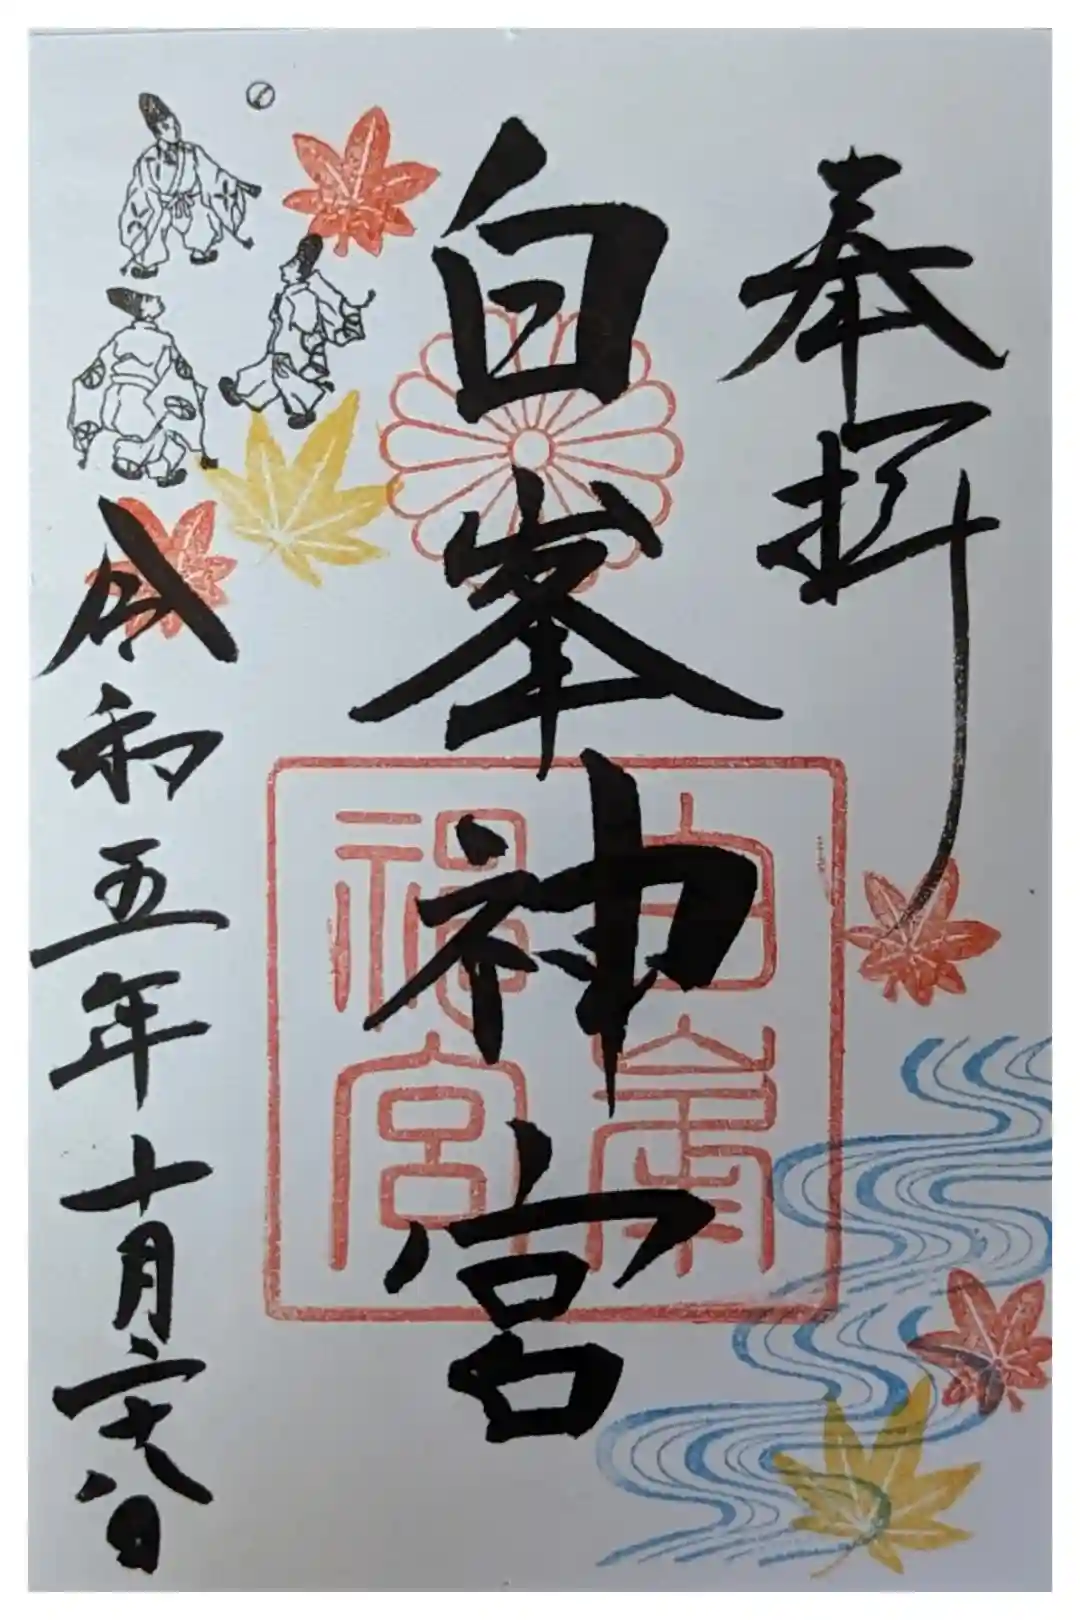 奉拝
白峯神宮
令和五年十月二十八日
白峯
神宮